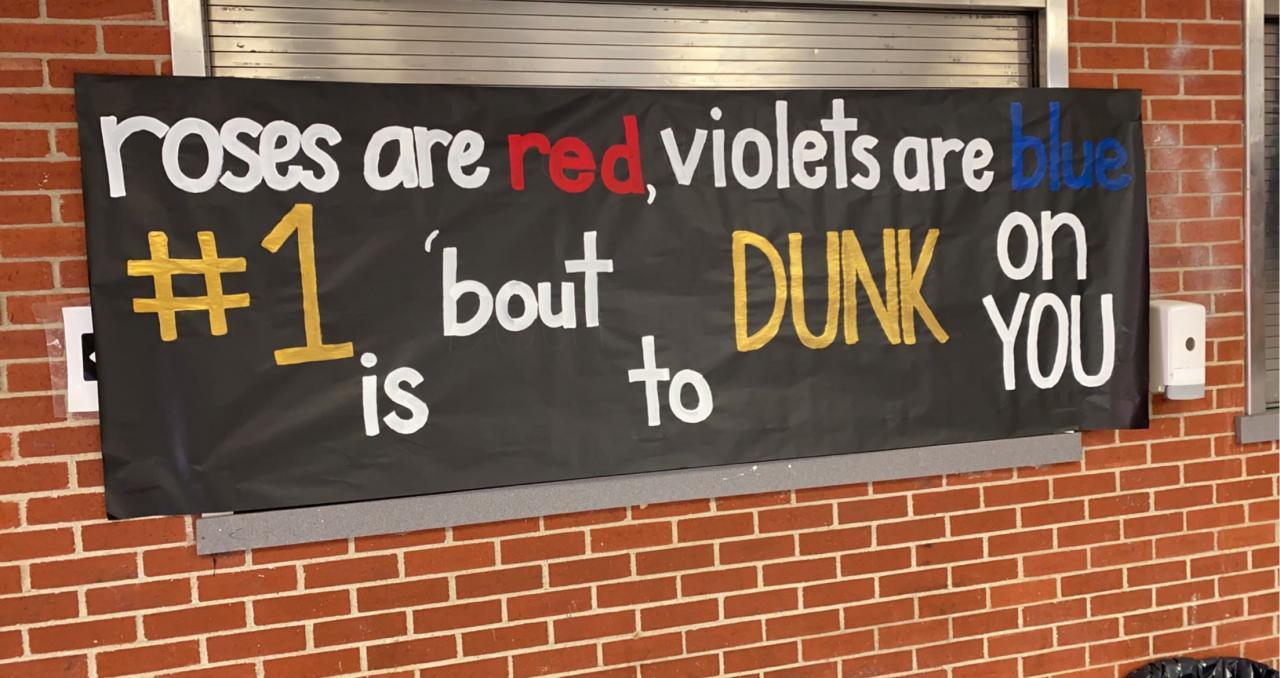 roses are red, violets are blue
#1 is 'bout to DUNK on YOU